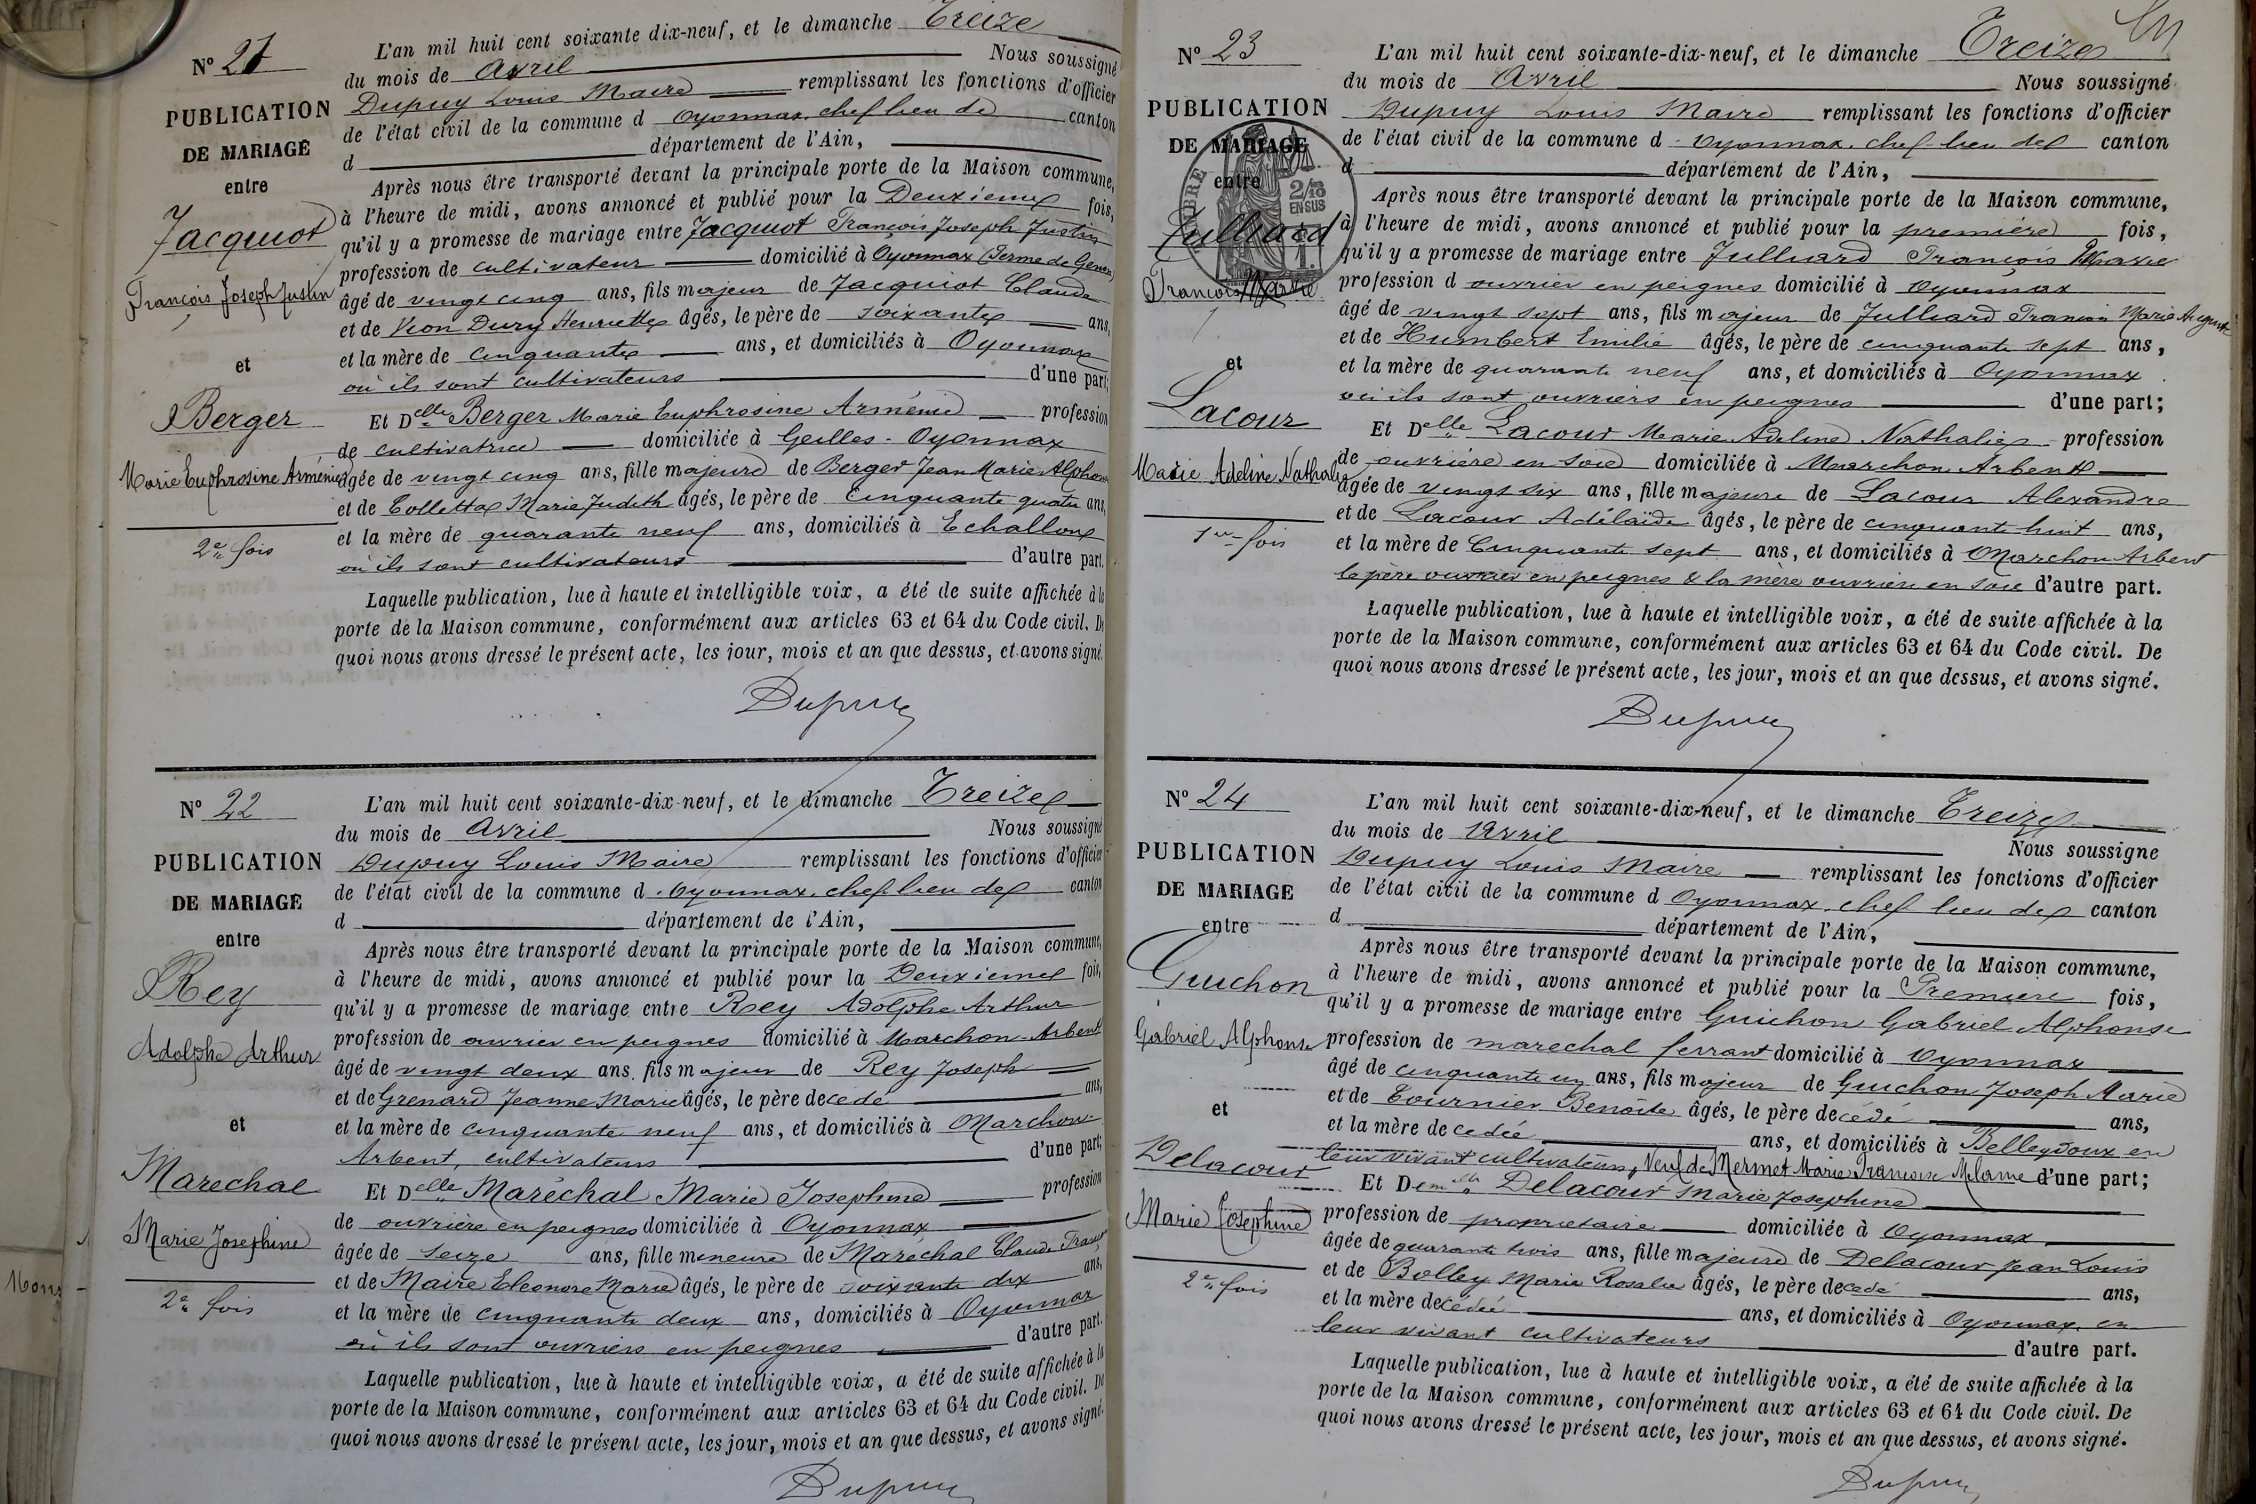 N° 21
PUBLICATION
DE MARIAGE
entre
Jacquiot
François Joseph Justin
et
Berger
Marie Euphrosine Arménie
2e fois
L'an mil huit cent soixante dix-neuf, et le dimanche Treize
du mois de Avril Nous soussigné
Dupuy Louis Maire remplissant les fonctions d'officier
de l'état civil de la commune d Oyonnax, chef lieu de canton
d département de l'Ain,
Après nous être transporté devant la principale porte de la Maison commune,
à l'heure de midi, avons annoncé et publié pour la Deuxième fois,
qu'il y a promesse de mariage entre Jacquiot François Joseph Justin
profession de cultivateur domicilié à Oyonnax (Ferme de
âgé de vingt cinq ans, fils majeur de Jacquiot Claude
et de Vion Dury Henriette âgés, le père de soixante ans,
et la mère de cinquante ans, et domiciliés à Oyonnax
où ils sont cultivateurs d'une part;
Et Delle Berger Marie Euphrosine Arménie profession
de cultivatrice domiciliée à Geilles - Oyonnax
âgée de vingt cinq ans, fille majeure de Berger Jean Marie Alphonse
et de Collettaz Marie Judith âgés, le père de Cinquante quatre ans,
et la mère de quarante neuf ans, domiciliés à Echallon
où ils sont cultivateurs d'autre part.
Laquelle publication, lue à haute et intelligible voix, a été de suite affichée à la
porte de la Maison commune, conformément aux articles 63 et 64 du Code civil. De
quoi nous avons dressé le présent acte, les jour, mois et an que dessus, et avons signé.
Dupuy
N° 22
PUBLICATION
DE MARIAGE
entre
Rey
Adolphe Arthur
et
Marechal
Marie Josephine
2e fois
L'an mil huit cent soixante-dix-neuf, et le dimanche Treize
du mois de Avril Nous soussigné
Dupuy Louis Maire remplissant les fonctions d'officier
de l'état civil de la commune d Oyonnax, chef lieu de canton
d département de l'Ain,
Après nous être transporté devant la principale porte de la Maison commune,
à l'heure de midi, avons annoncé et publié pour la Deuxieme fois,
qu'il y a promesse de mariage entre Rey Adolphe Arthur
profession de ouvrier en peignes domicilié à Marchon Arbent
âgé de vingt deux ans, fils majeur de Rey Joseph
et de Grenard Jeanne Marie âgés, le père decedé ans,
et la mère de cinquante neuf ans, et domiciliés à Marchon
Arbent, cultivateurs d'une part;
Et Delle Maréchal Marie Josephine profession
de ouvrière en peignes domiciliée à Oyonnax
âgée de seize ans, fille mineure de Maréchal Claude
et de Maire Eléonore Marie âgés, le père de soixante dix ans,
et la mère de cinquante deux ans, domiciliés à Oyonnax
où ils sont ouvriers en peignes d'autre part.
Laquelle publication, lue à haute et intelligible voix, a été de suite affichée à la
porte de la Maison commune, conformément aux articles 63 et 64 du Code civil. De
quoi nous avons dressé le présent acte, les jour, mois et an que dessus, et avons signé.
Dupuy
N° 23
PUBLICATION
DE MARIAGE
entre
Julliard
François Marie
et
Lacour
Marie Adeline Nathalie
1re fois
TIMBRE
2/10
EN SUS
1.
L'an mil huit cent soixante-dix-neuf, et le dimanche Treize
du mois de Avril Nous soussigné
Dupuy Louis Maire remplissant les fonctions d'officier
de l'état civil de la commune d Oyonnax, chef lieu de canton
d département de l'Ain,
Après nous être transporté devant la principale porte de la Maison commune,
à l'heure de midi, avons annoncé et publié pour la première fois,
qu'il y a promesse de mariage entre Julliard François Marie
profession d ouvrier en peignes domicilié à Oyonnax
âgé de vingt sept ans, fils majeur de Julliard François Marie
et de Humbert Emilie âgés, le père de cinquante sept ans,
et la mère de quarante neuf ans, et domiciliés à Oyonnax
où ils sont ouvriers en peignes d'une part;
Et Delle Lacour Marie Adeline Nathalie profession
de ouvrière en soie domiciliée à Marchon Arbent
âgée de vingt six ans, fille majeure de Lacour Alexandre
et de Lacour Adélaïde âgés, le père de cinquante huit ans,
et la mère de Cinquante sept ans, et domiciliés à Marchon Arbent
le père ouvrier en peignes & la mère ouvrière en soie d'autre part.
Laquelle publication, lue à haute et intelligible voix, a été de suite affichée à la
porte de la Maison commune, conformément aux articles 63 et 64 du Code civil. De
quoi nous avons dressé le présent acte, les jour, mois et an que dessus, et avons signé.
Dupuy
N° 24
PUBLICATION
DE MARIAGE
entre
Guichon
Gabriel Alphonse
et
Delacour
Marie Josephine
2e fois
L'an mil huit cent soixante-dix-neuf, et le dimanche Treize
du mois de Avril Nous soussigné
Dupuy Louis Maire remplissant les fonctions d'officier
de l'état civil de la commune d Oyonnax, chef lieu de canton
d département de l'Ain,
Après nous être transporté devant la principale porte de la Maison commune,
à l'heure de midi, avons annoncé et publié pour la Premiere fois,
qu'il y a promesse de mariage entre Guichon Gabriel Alphonse
profession de marechal ferrant domicilié à Oyonnax
âgé de cinquante un ans, fils majeur de Guichon Joseph Marie
et de Tournier Benoite âgés, le père décédé ans,
et la mère decedée ans, et domiciliés à Belleydoux en
leur vivant cultivateurs, Veuf de Mermet Marie Françoise d'une part;
Et Demelle Delacour Marie Josephine
profession de propriétaire domiciliée à Oyonnax
âgée de quarante trois ans, fille majeure de Delacour Jean Louis
et de Bolley Marie Rosalie âgés, le père decedé ans,
et la mère décédée ans, et domiciliés à Oyonnax en
leur vivant cultivateurs d'autre part.
Laquelle publication, lue à haute et intelligible voix, a été de suite affichée à la
porte de la Maison commune, conformément aux articles 63 et 64 du Code civil. De
quoi nous avons dressé le présent acte, les jour, mois et an que dessus, et avons signé.
Dupuy